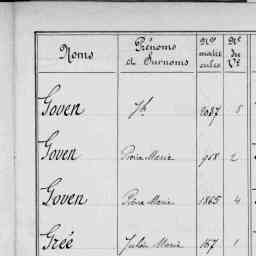 Noms Prénoms et Surnoms Nos matricules Nos du Vt
Goven Jh 2087 8
Goven Pierre Marie 918 2
Goven Pierre Marie 1865 4
Gréé Julien Marie 167 1